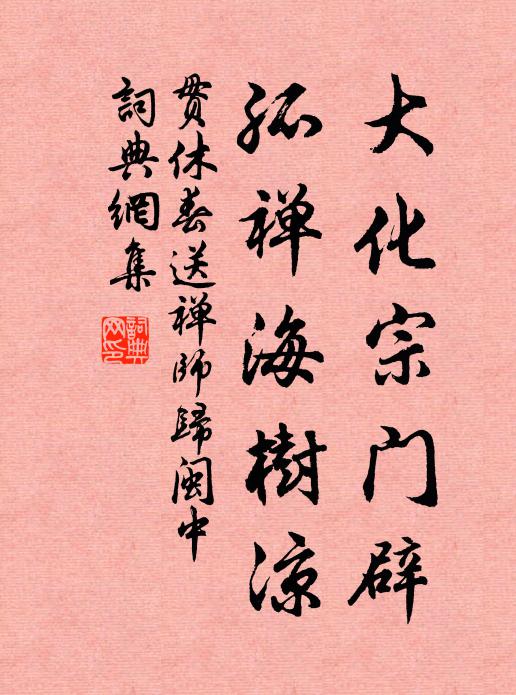 大化宗门辟
孤禅海樹涼
贯休春送禅师歸闽中
詞典網集
詞典网印